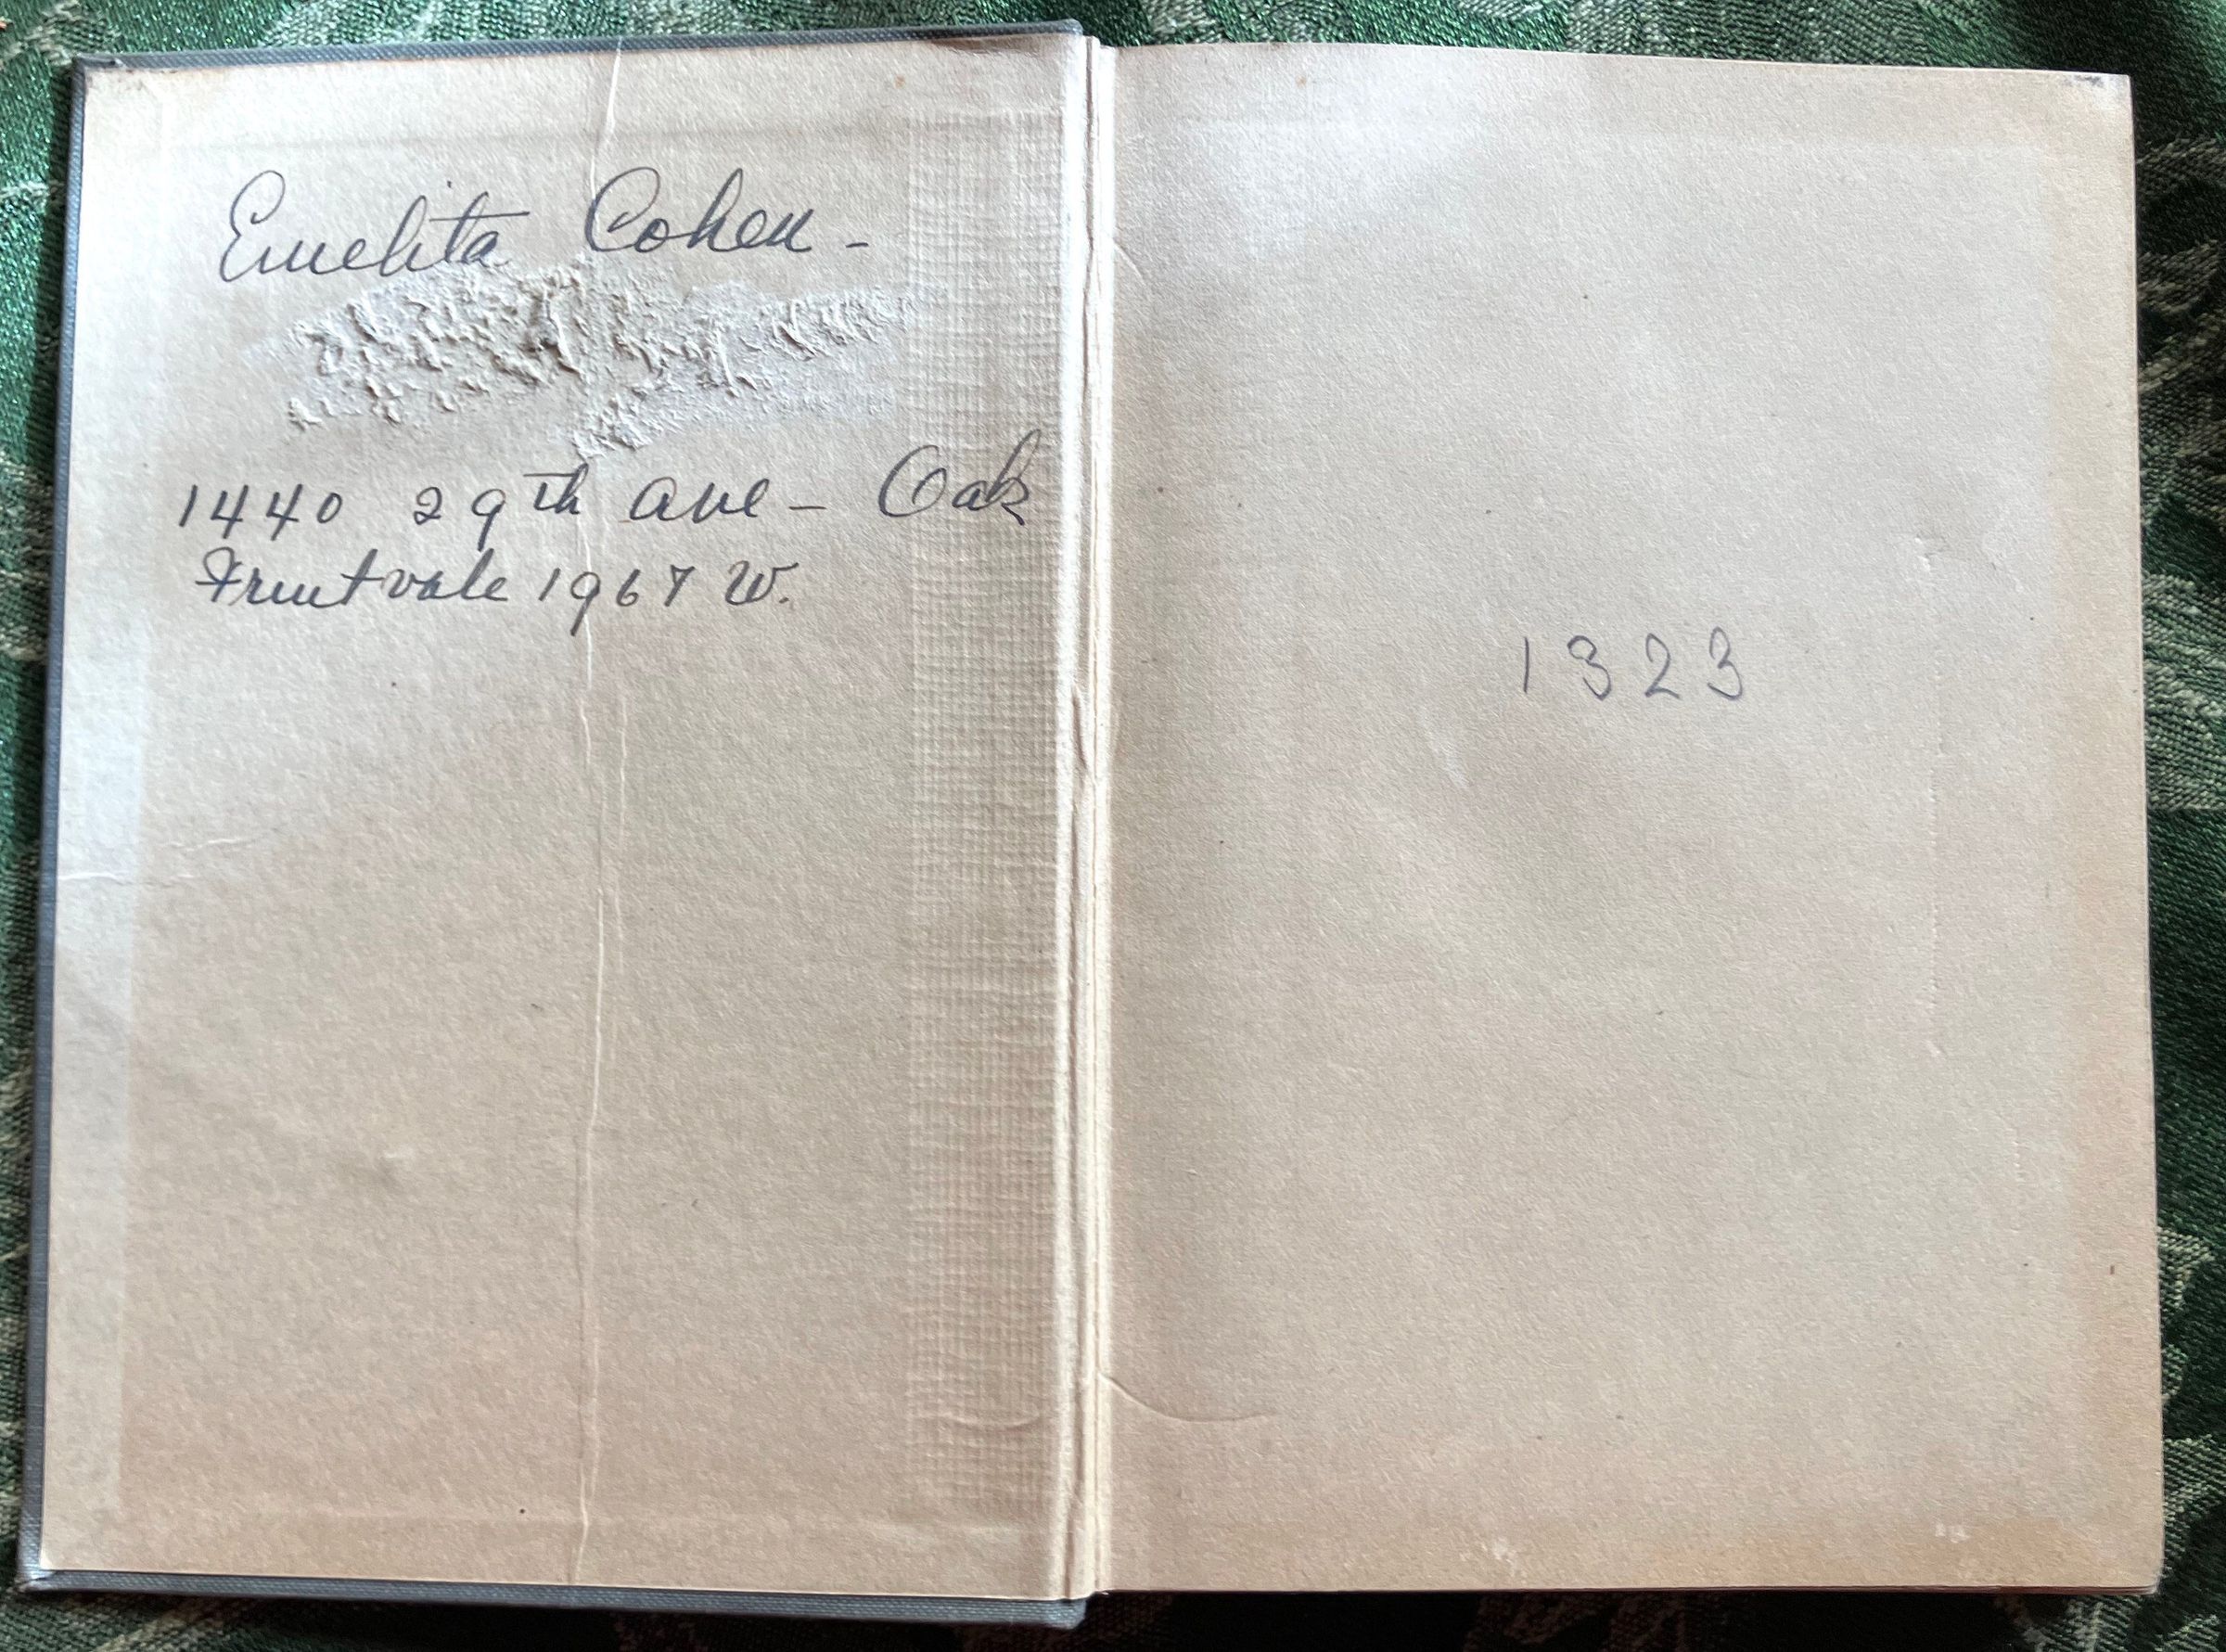 Emelita Cohen -
1440 29th Ave - Oak
Fruitvale 1967 W.
1323